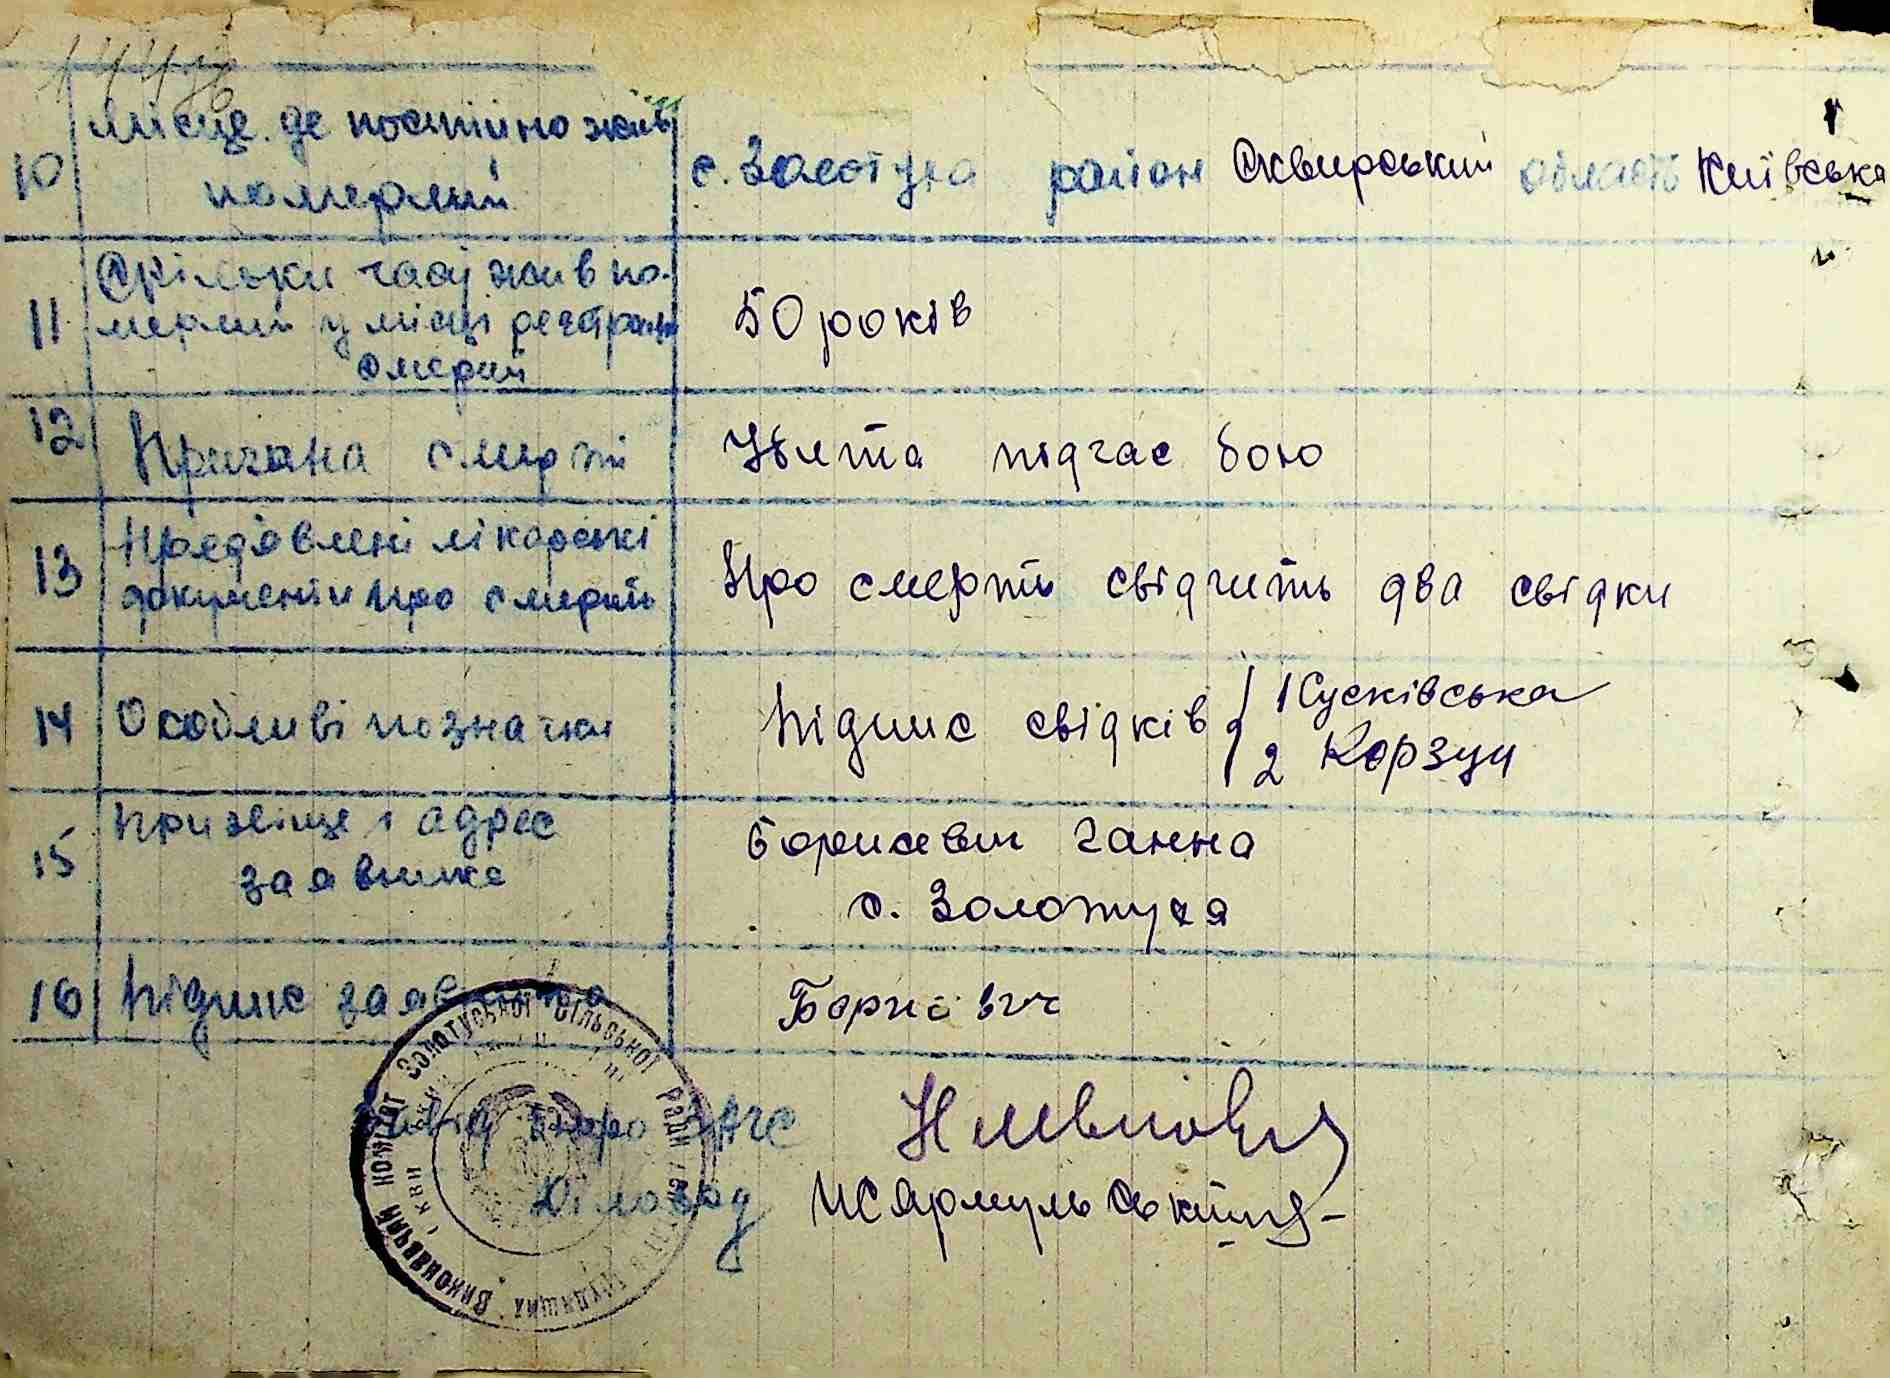 10 Місце де постійно жив с. Золотуха район Сквирський область Київська
померлий
Скільки часу жив по-
11 мерлий у місці реєстрації 50 років
смерти
12 Причина смерті Убита підчас бою
Предявлені лікарські
13 документи про смерть Про смерть свідчить два свідки
14 Особливі позначки Підпис свідків 1 Сусківська
2 Корзун
Призвіще і адрес Борисевич Ганна
15 заявника с. Золотуха
16 Підпис заявника Борисевич
Виконавчий комітет Золотуської сільської Ради
трудящих
Завід Бюро ЗАГС
Діловод